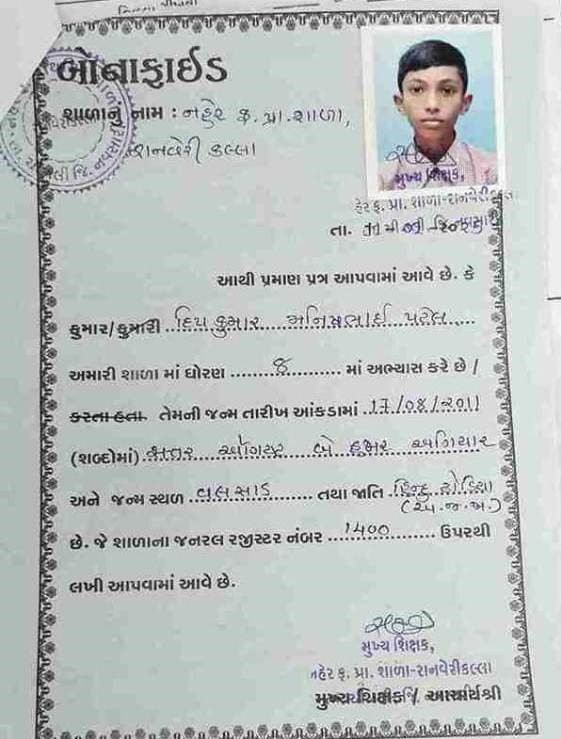 બોનાફાઈડ
શાળાનું નામ : નહેર ફ. પ્રા. શાળા,
રાનવેરી કલ્લા
મુખ્ય શિક્ષક,
હેર ફ. પ્રા. શાળા-રાનવેરીકલ્લા
તા.
આથી પ્રમાણ પત્ર આપવામાં આવે છે. કે
કુમાર/કુમારી દિપકુમાર મનિષભાઈ પટેલ
અમારી શાળા માં ધોરણ ૪ માં અભ્યાસ કરે છે /
કરતા હતા. તેમની જન્મ તારીખ આંકડામાં 17/08/2011
(શબ્દોમાં) સત્તર ઓગસ્ટ બે હજાર અગિયાર
અને જન્મ સ્થળ વલસાડ તથા જાતિ હિન્દુ ધોડિયા
(અ.જ.જા.)
છે. જે શાળાના જનરલ રજીસ્ટર નંબર 1400 ઉપરથી
લખી આપવામાં આવે છે.
મુખ્ય શિક્ષક,
નહેર ફ. પ્રા. શાળા-રાનવેરીકલ્લા
મુખ્ય શિક્ષક / આચાર્યશ્રી